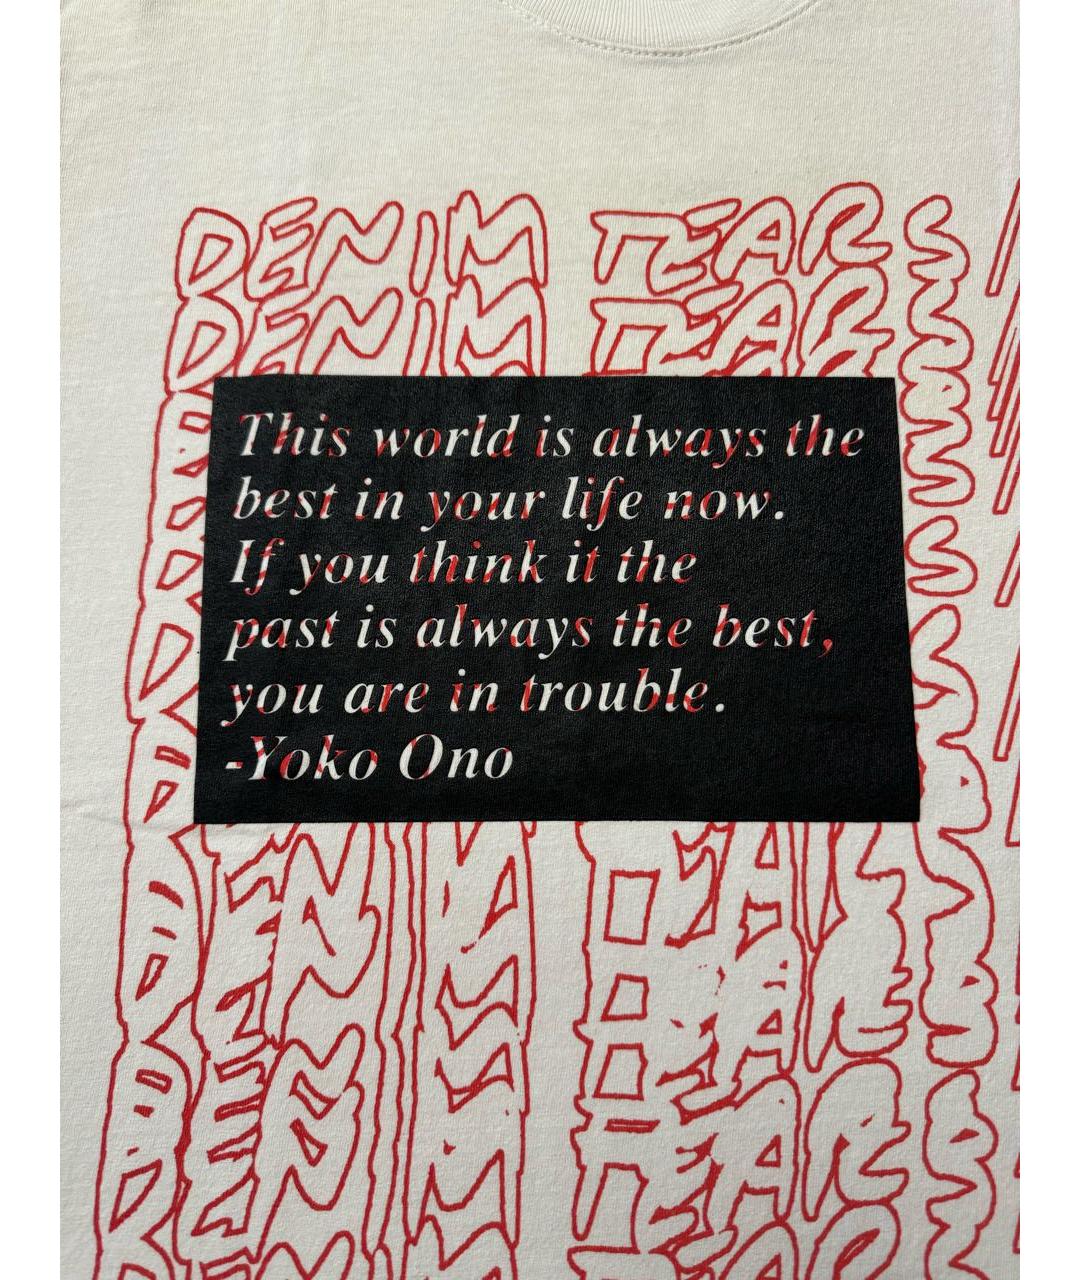 DENIM TEARS
DENIM TEARS
This world is always the
best in your life now.
If you think it the
past is always the best,
you are in trouble.
-Yoko Ono